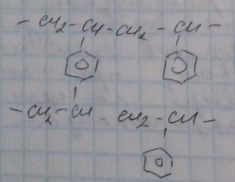 - CH₂ - CH - CH₂ - CH -
- CH₂ - CH - CH₂ - CH -